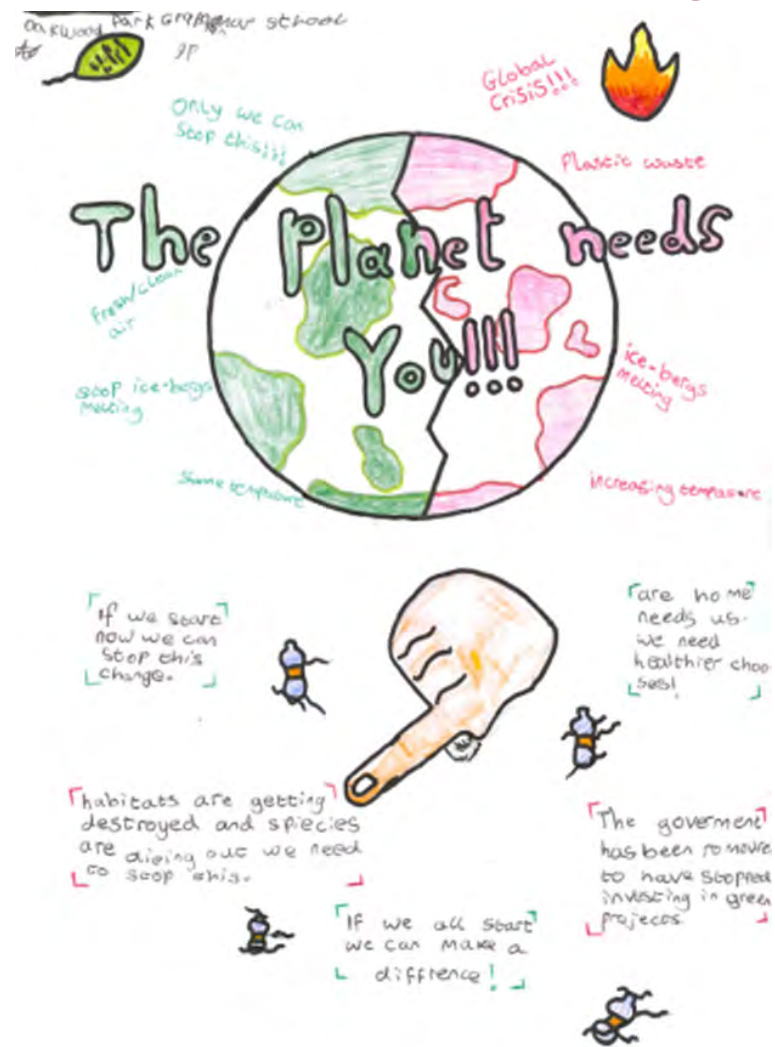 Oakwood Park Grammar school
9P
Global
Crisis!!!
Only we can
stop this!!!
Plastic waste
The Planet needs
You!!!
Fresh/clean
air
stop ice-bergs
melting
ice-bergs
melting
same tempasure
increasing tempasure
If we start
now we can
stop this
change.
are home
needs us.
we need
healthier choo
ses!
habitats are getting
destroyed and spiecies
are dieing out we need
to stop this.
The goverment
has been romoured
to have stopped
investing in green
projects
If we all start
we can make a
diffrence!